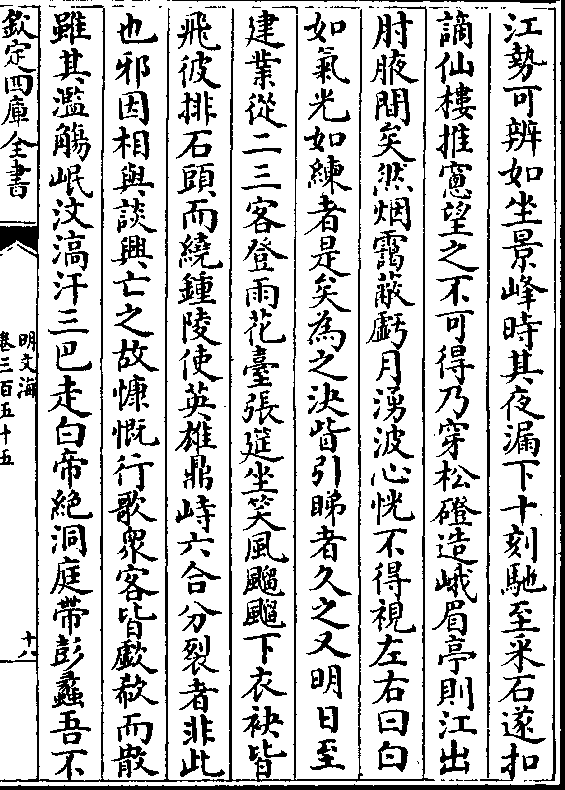 江勢可辨如坐景峰時其夜漏下十刻馳至采石遂扣
謫仙樓推窻望之不可得乃穿松磴造峨眉亭則江出
肘腋間矣然烟靄蔽虧月湧波心恍不得視左右曰白
如氣光如練者是矣為之決眥引睇者久之又明日至
建業從二三客登雨花臺張筵坐笑風颼颼下衣袂皆
飛彼排石頭而繞鍾陵使英雄鼎峙六合分裂者非此
也邪因相與談興亡之故慷慨行歌衆客皆歔欷而散
雖其濫觴岷汶滈汗三巴走白帝絶洞庭帶彭蠡吾不
欽定四庫全書
明文海
卷三百五十五
十八